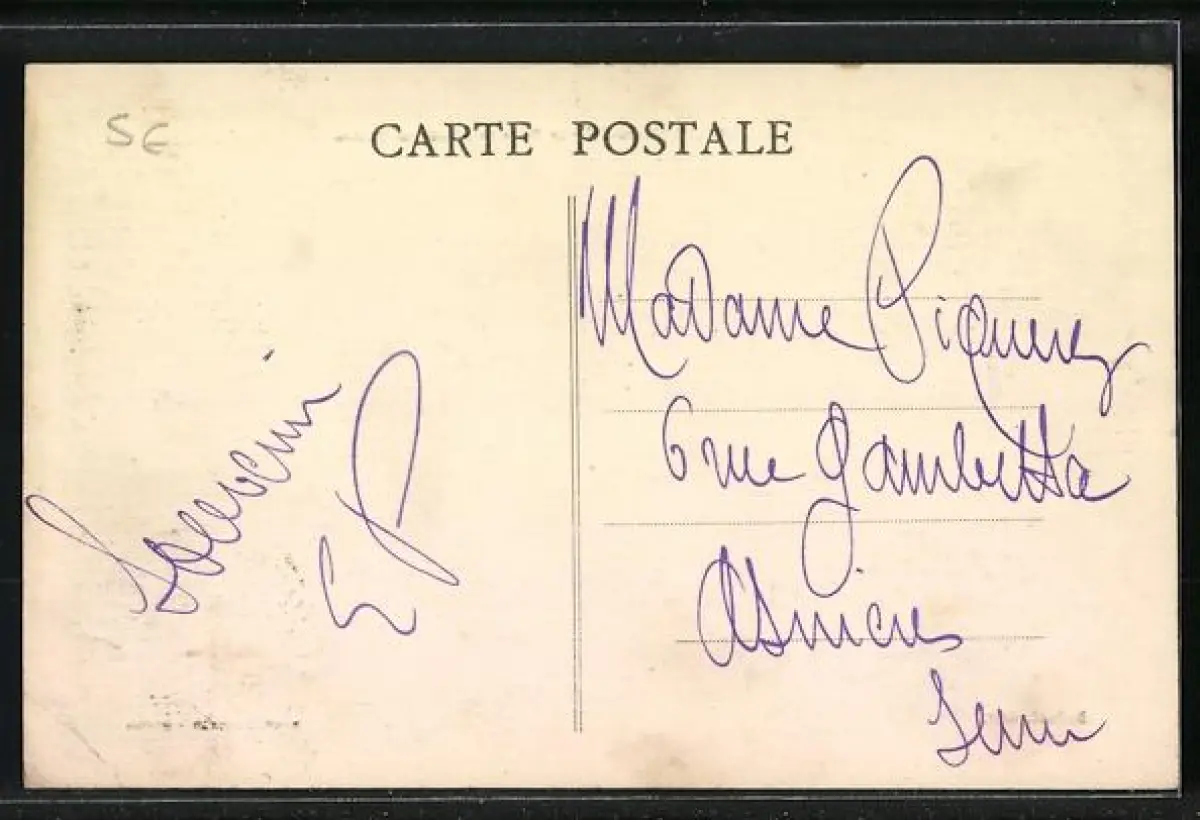 CARTE POSTALE
SE
Souvenir
EP
Madame Piquerez
6 rue Gambetta
Asnieres
Seine